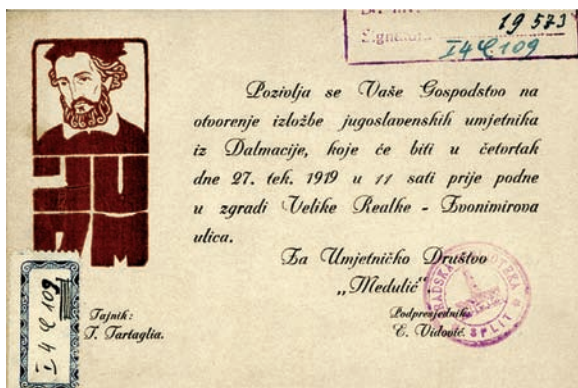 Br. inv. 19573
Signatura I4 L 109
Pozivlja se Vaše Gospodstvo na
otvorenje izložbe jugoslavenskih umjetnika
iz Dalmacije, koje će biti u četvrtak
dne 27. tek. 1919 u 11 sati prije podne
u zgradi Velike Realke - Zvonimirova
ulica.
Za Umjetničko Društvo
„Medulić”.
Tajnik:
Podpresjednik:
T. Tartaglia.
E. Vidović.
JU
DM
I 4 L 109
GRADSKA BIBLIOTEKA
SPLIT